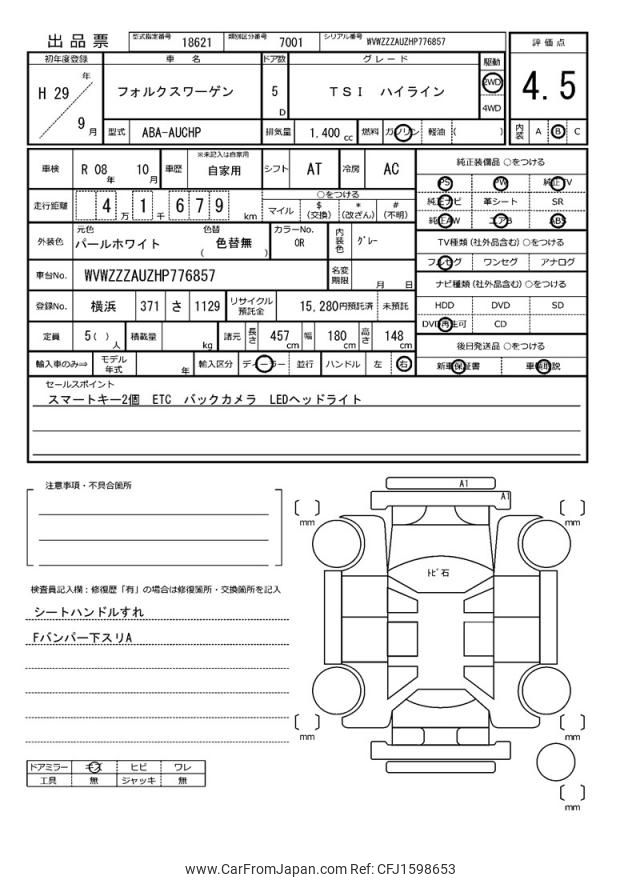 出品票 型式指定番号 18621 類別区分番号 7001 シリアル番号 WVWZZZAUZHP776857
評価点
4.5
初年度登録 車名 ドア数 グレード 駆動
H 29 年 9 月 フォルクスワーゲン 5 D TSI ハイライン 2WD 4WD
型式 ABA-AUCHP 排気量 1,400 cc 燃料 ガソリン 軽油 ( ) 内装 A B C
車検 R 08 年 10 月 車歴 ※未記入は自家用 自家用 シフト AT 冷房 AC
走行距離 4 万 1 千 6 7 9 km ○をつける マイル $ (交換) * (改ざん) # (不明)
外装色 元色 パールホワイト 色替 色替無 ( ) カラーNo. 0R 内装色 グレー
車台No. WVWZZZAUZHP776857 名変期限 月 日
登録No. 横浜 371 さ 1129 リサイクル預託金 15,280円預託済 未預託
定員 5( ) 人 積載量 kg 諸元 長さ 457 cm 幅 180 cm 高さ 148 cm
輸入車のみ⇒ モデル年式 年 輸入区分 ディーラー 並行 ハンドル 左 右
純正装備品 ○をつける
PS PW 純正TV
純正ナビ 革シート SR
純正AW エアB ABS
TV種類 (社外品含む) ○をつける
フルセグ ワンセグ アナログ
ナビ種類 (社外品含む) ○をつける
HDD DVD SD
DVD再生可 CD
後日発送品 ○をつける
新車保証書 車輌取説
セールスポイント
スマートキー2個 ETC バックカメラ LEDヘッドライト
注意事項・不具合箇所
検査員記入欄:修復歴「有」の場合は修復箇所・交換箇所を記入
シートハンドルすれ
Fバンパー下スリA
ドアミラー キズ ヒビ ワレ
工具 無 ジャッキ 無
A1
A1
トビ石
mm
mm
mm
mm
mm
www.CarFromJapan.com Ref: CFJ1598653